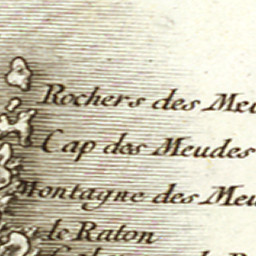 Rochers des Me
Cap des Meudes
Montagne des Meu
le Raton